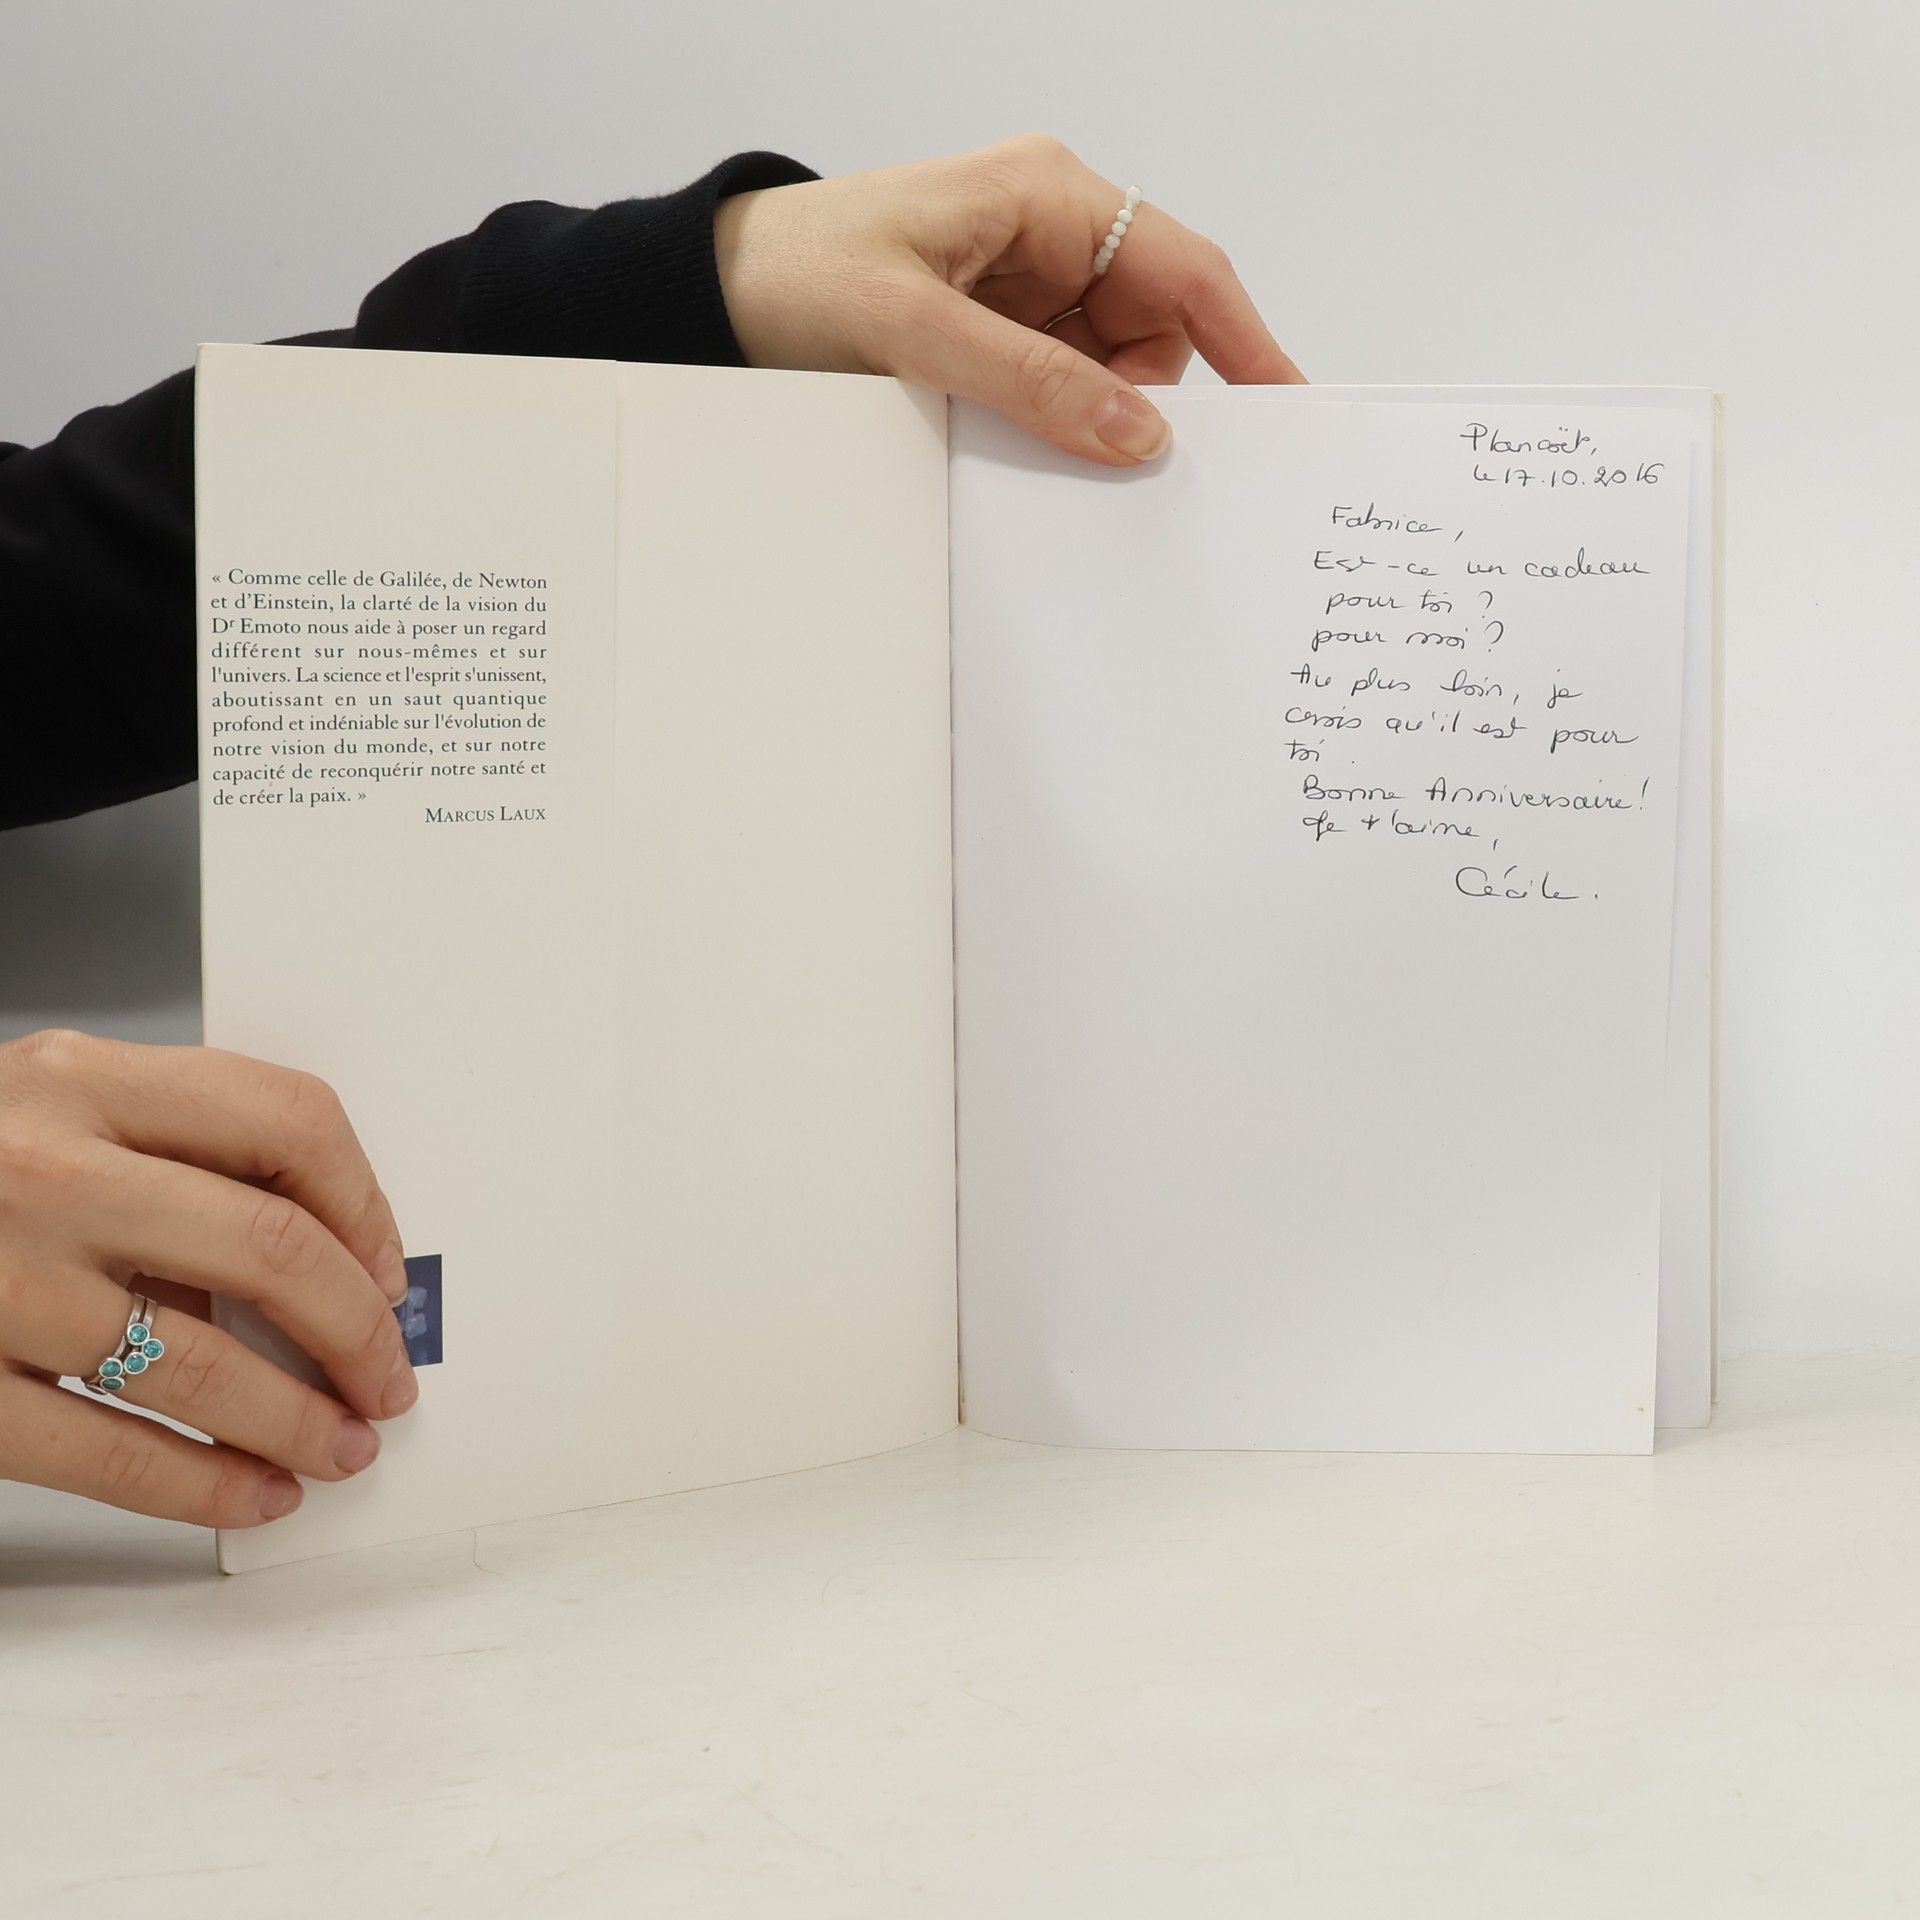 « Comme celle de Galilée, de Newton
et d'Einstein, la clarté de la vision du
Dr Emoto nous aide à poser un regard
différent sur nous-mêmes et sur
l'univers. La science et l'esprit s'unissent,
aboutissant en un saut quantique
profond et indéniable sur l'évolution de
notre vision du monde, et sur notre
capacité de reconquérir notre santé et
de créer la paix. »
MARCUS LAUX
Plancoët,
le 17.10.2016
Fabrice,
Est-ce un cadeau
pour toi ?
pour moi ?
Au plus loin, je
crois qu'il est pour
toi.
Bonne Anniversaire !
Je t'aime,
Cécile.